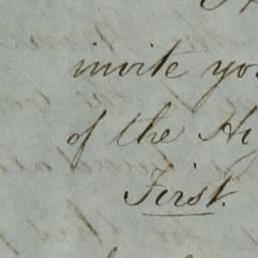 invite yo
of the Hi
First.